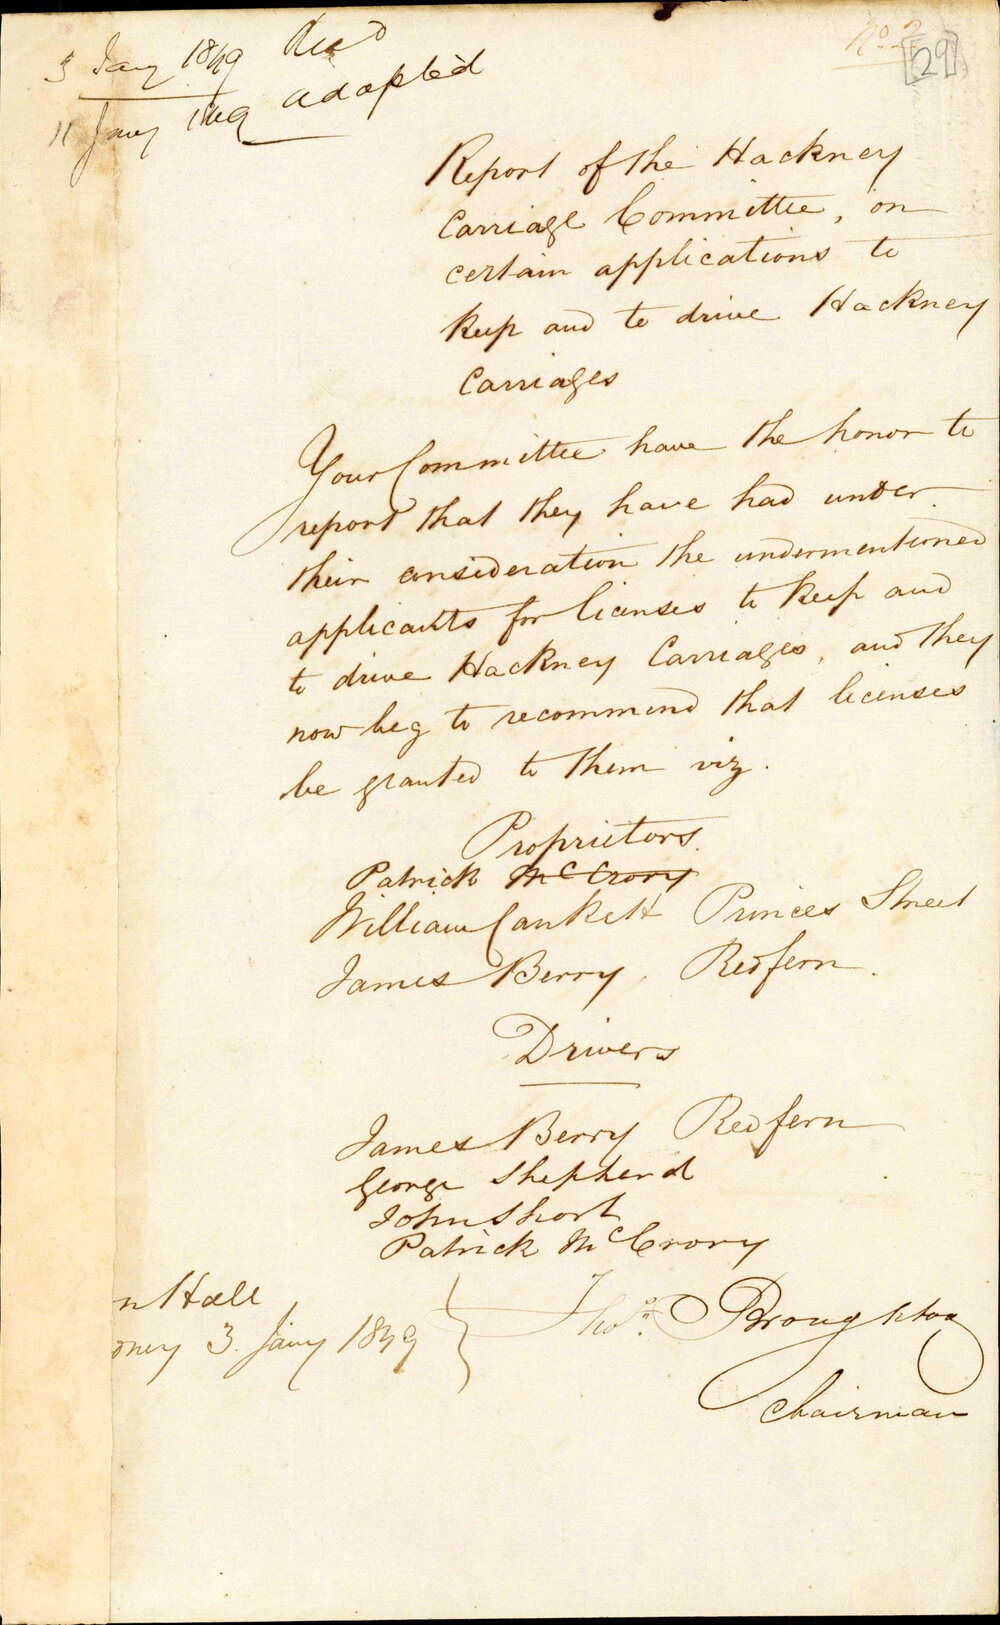 No. 2
[29]
3 Jany 1849 Recd
11 Jany 1849 adopted
Report of the Hackney
Carriage Committee, on
certain applications to
keep and to drive Hackney
Carriages
Your Committee have the honor to
report that they have had under
their consideration the undermentioned
applicants for licenses to keep and
to drive Hackney Carriages, and they
now beg to recommend that licenses
be granted to them viz.
Proprietors.
Patrick McCrory
William Cankett Princes Street
James Berry. Redfern.
Drivers
James Berry Redfern
George Shepherd
John Short
Patrick McCrory
n Hall
dney 3. Jany 1849
Thos. Broughton
Chairman